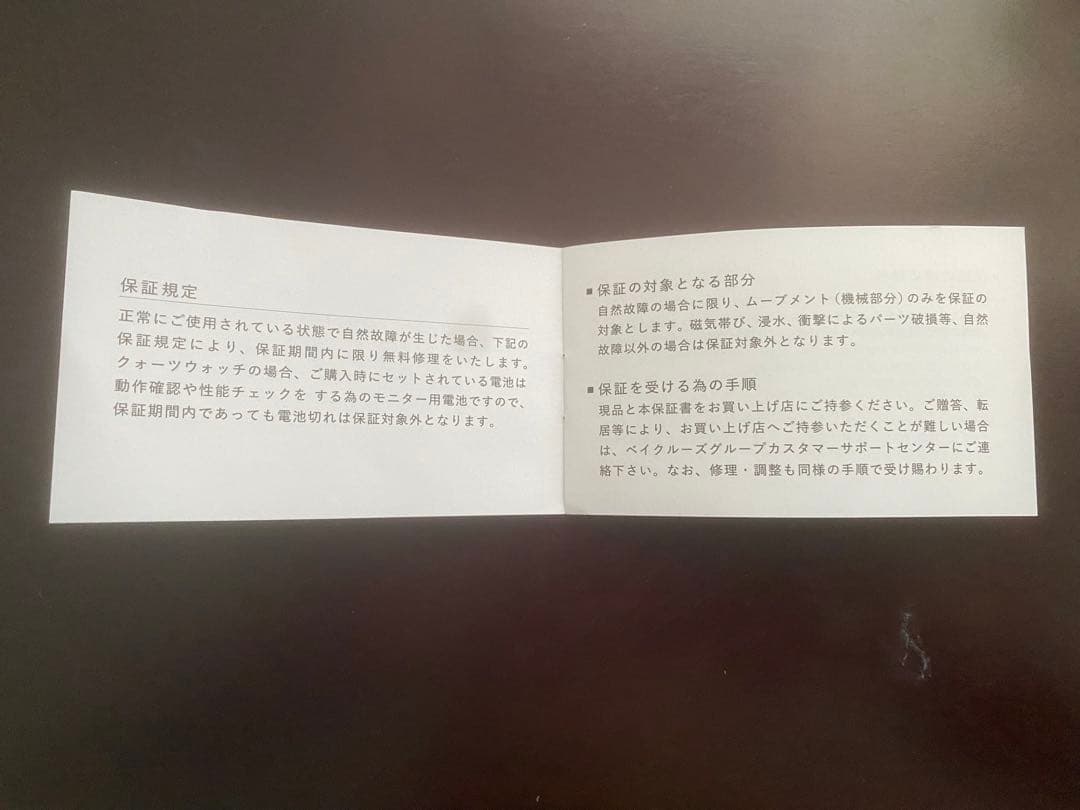 保証規定
正常にご使用されている状態で自然故障が生じた場合、下記の
保証規定により、保証期間内に限り無料修理をいたします。
クォーツウォッチの場合、ご購入時にセットされている電池は
動作確認や性能チェックを する為のモニター用電池ですので、
保証期間内であっても電池切れは保証対象外となります。
■ 保証の対象となる部分
自然故障の場合に限り、ムーブメント（機械部分）のみを保証の
対象とします。磁気帯び、浸水、衝撃によるパーツ破損等、自然
故障以外の場合は保証対象外となります。
■ 保証を受ける為の手順
現品と本保証書をお買い上げ店にご持参ください。ご贈答、転
居等により、お買い上げ店へご持参いただくことが難しい場合
は、ベイクルーズグループカスタマーサポートセンターにご連
絡下さい。なお、修理・調整も同様の手順で受け賜わります。